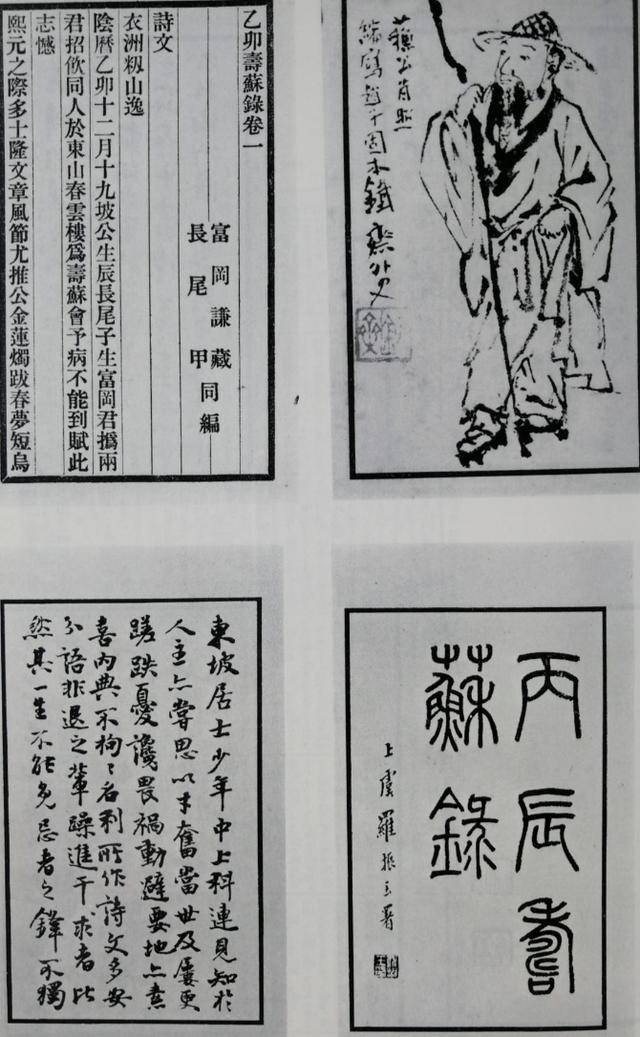 蘇公肖照
縮寫趙子固本鐵齋外史
乙卯壽蘇錄卷一
富岡謙藏
長尾甲同編
詩文
衣洲籾山逸
陰曆乙卯十二月十九坡公生辰長尾子生富岡君撝兩
君招飲同人於東山春雲樓爲壽蘇會予病不能到賦此
志憾
熙元之際多士隆文章風節尤推公金蓮燭跋春夢短烏
丙辰壽
蘇錄
上虞羅振玉署
東坡居士少年中上科連見知於
人主亦嘗思以才奮當世及屢更
蹉跌憂讒畏禍動避要地亦素
喜內典不拘々名利所作詩文多安
分語非退之輩躁進干求者比
然其一生不能免忌者之鋒不獨